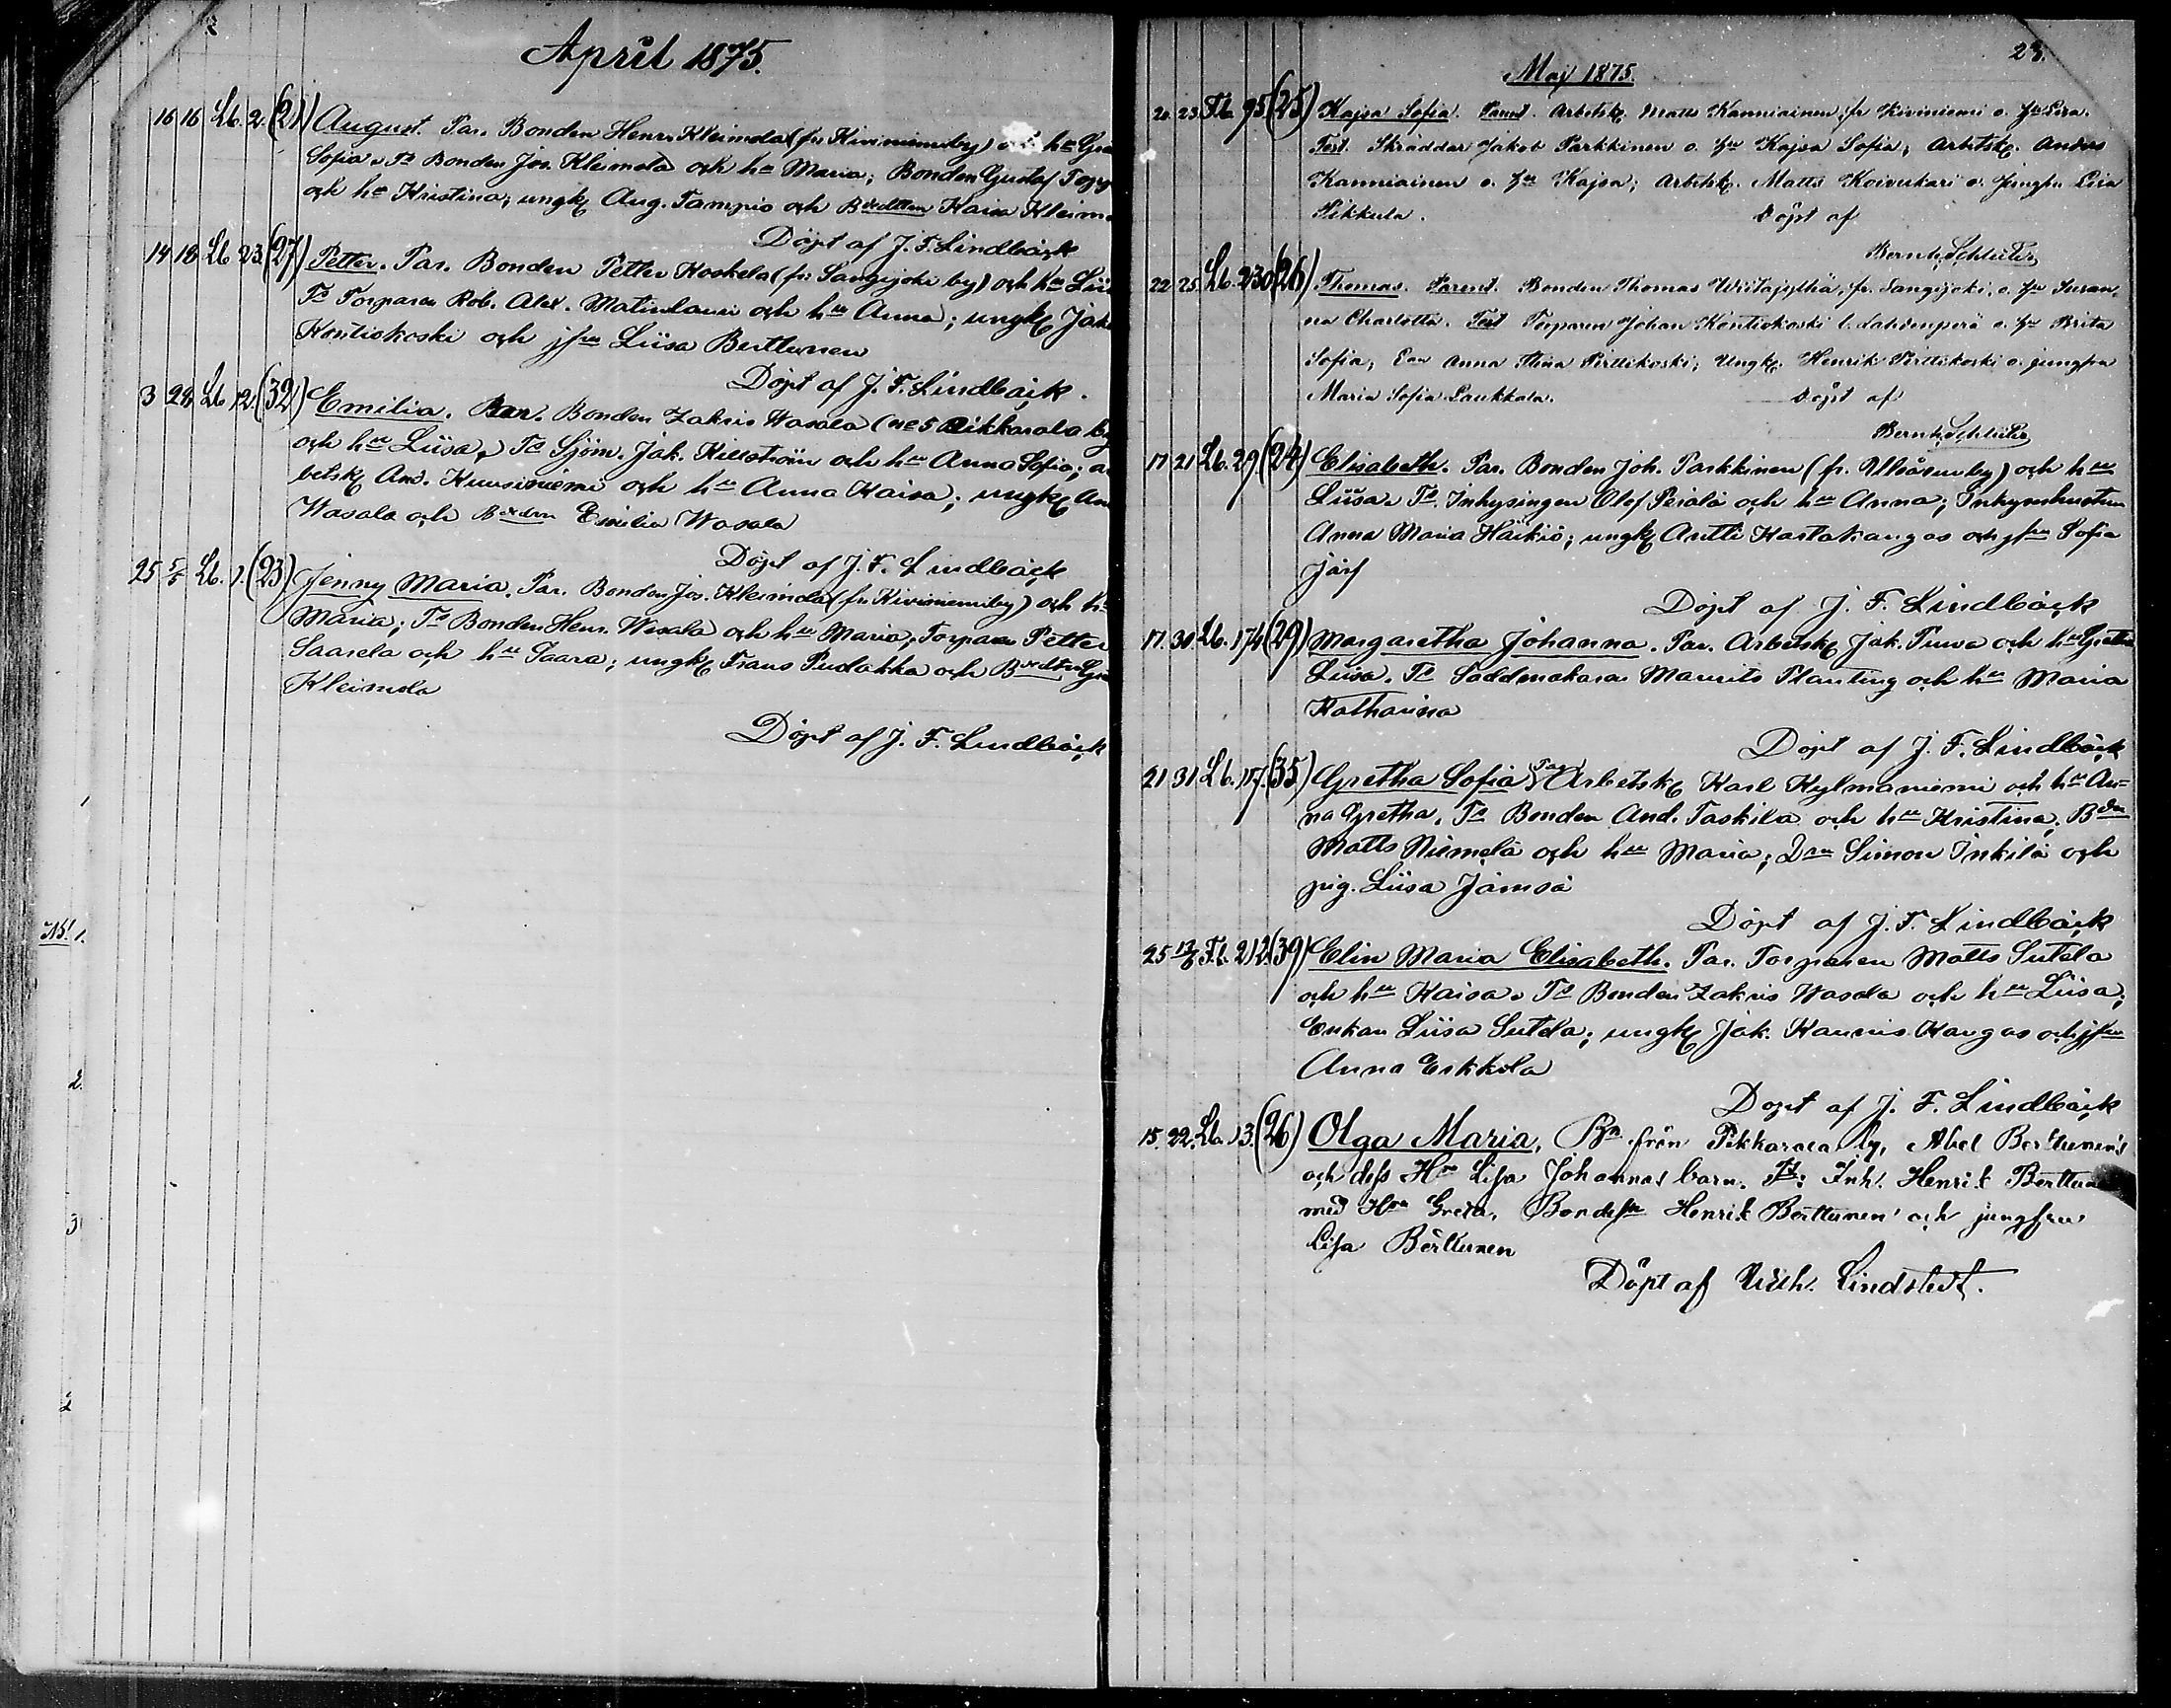 April 1875.
16 16 Lb. 2. (21) August. Par. Bonden Henr. Kleimola (fr. Kiviniemi by) och hu Gre
Sofia. Ts Bonden Jos. Kleimola och hu Maria; Bonden Gustaf
och hu Kristina; ungk. Aug. Tampio och Bdedttren Kaisa Kleim
Döpt af J. F. Lindbäck
14 18 Lb 23. (27) Petter. Par. Bonden Petter Koskela (fr. Sangijoki by) och hu Liis
Ts Torparen Rob. Alex. Matinlauri och hu Anna; ungk. Jak
Kontiokoski och jfru Liisa Berttunen
Döpt af J. F. Lindbäck.
3 28 Lb 12. (32) Emilia. Par. Bonden Zakris Wasala (No 5 Pikkarala by
och hu Liisa, Ts Sjöm. Jak. Killström och hu Anna Sofia; ar
betsk. And. Kuusiniemi och hu Anna Kaisa; ungk. An
Wasala och Bdedrn Emilia Wasala
Döpt af J. F. Lindbäck
25 5/5 Lb. 1. (23) Jenny Maria. Par. Bonden Jos. Kleimola (fr. Kiviniemi by) och hu
Maria; Ts Bonden Henr. Wasala och hu Maria; Torparen Petter
Saarela och hu Saara; ungk. Frans Pudakka och Bdedttr Gre
Kleimola
Döpt af J. F. Lindbäck
NB. 1.
2.
3
2
23.
Maj 1875.
20. 23. Fl. 95 (25) Kajsa Sofia. Parent. Arbetsk. Matts Kanniainen, fr. Kiviniemi o. hu Lisa.
Test. Skräddar Jakob Parkkinen o. hu Kajsa Sofia; Arbetsk. Anders
Kanniainen o. hu Kajsa; Arbetsk. Matts Koivukari o. Jungfru Lisa
Pikkula. Döpt af
Bernh. Schlüter
22 25. Lb. 230 (26) Thomas. Parent. Bonden Thomas Wiitajylhä, fr. Sangijoki, o. hu Susan-
na Charlotta. Test Torparen Johan Kontiokoski l. Lahdenperä o. hu Brita
Sofia; Ean Anna Stina Pirttikoski; Ungk. Henrik Pirttikoski o. jungfru
Maria Sofia Laukkala. Döpt af
Bernh. Schlüter
17 21 Lb. 29. (24) Elisabeth. Par. Bonden Joh. Parkkinen (fr. by) och hu
Liisa. Ts. Inhysingen Olof Peiolä och hu Anna; Inhyseshustrun
Anna Maria Häikiö; ungk. Antti Hartakangas och jfru Sofia
Järf
Döpt af J. F. Lindbäck
17. 30. Lb. 174 (29) Margaretha Johanna. Par. Arbetsk. Jak. Purva och hu Gretha
Liisa. Ts Maurits Planting och hu Maria
Katharina
Döpt af J. F. Lindbäck
21 31 Lb. 117. (35) Gretha Sofia Par Arbetsk. Karl Kylmäniemi och hu An=
na Gretha. Ts Bonden And. Taskila och hu Kristina; Bdn
Matts Niemelä och hu Maria; Drn Simon Inkilä och
pig. Liisa Jämsä
Döpt af J. F. Lindbäck
25 13/6 Fl. 212. (39) Elin Maria Elisabeth. Par. Torparen Matts Sutela
och hu Kaisa. Ts Bonden Zakris Wasala och hu Liisa;
Enkan Liisa Sutela; ungk. Jak. Kaunis Kangas och jfru
Anna Eskkola
Döpt af J. F. Lindbäck
15. 22. Lb. 13. (26) Olga Maria, Bn från Pikkarala by, Abel Berttunen's
och dess Hu Lisa Johannas barn. Tt: Inh. Henrik Berttunen
med Hru Greta. Bondeson Henrik Berttunen och jungfru
Lisa Berttunen
Döpt af Wilh. Lindstedt.